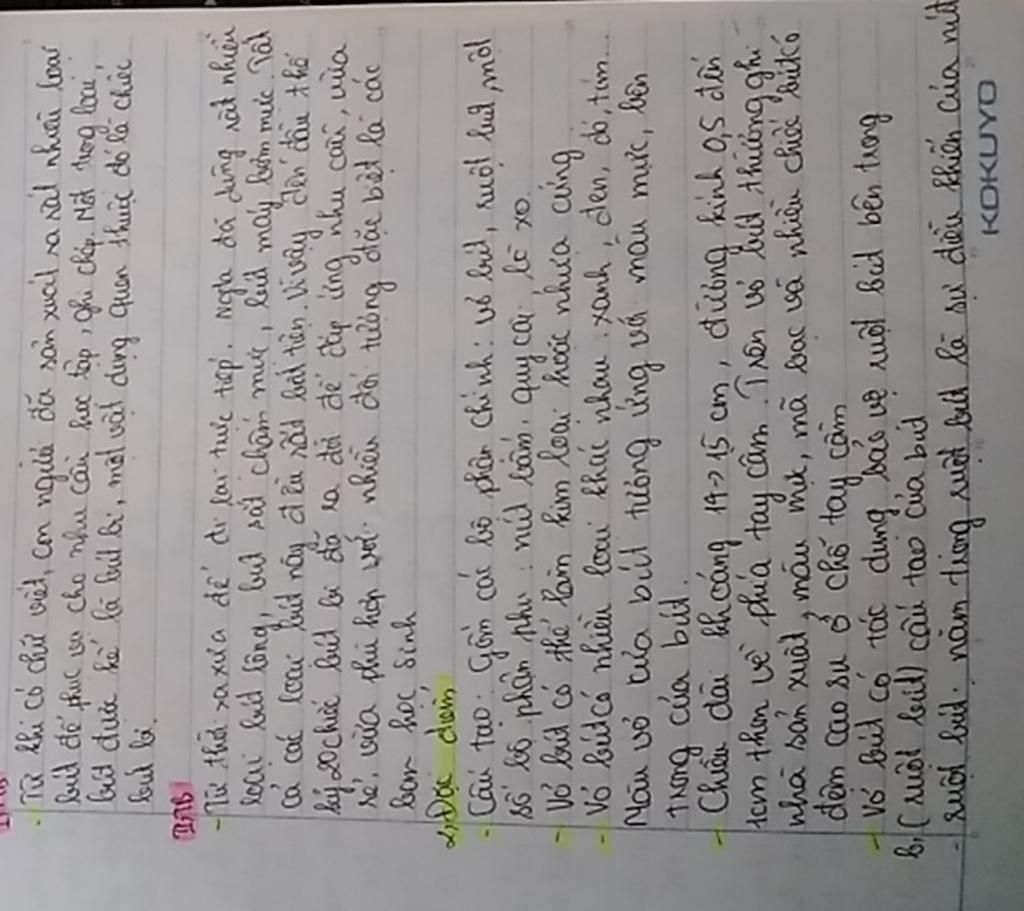 I, MB
- Từ khi có chữ viết, con người đã sản xuất ra rất nhiều loại
bút để phục vụ cho nhu cầu học tập, ghi chép. Một trong loại
bút được kể là bút bi, một vật dụng quen thuộc đó là chiếc
bút bi
II, TB
- Từ thời xa xưa để đi lại trực tiếp. Ngta đã dùng rất nhiều
loại bút lông, bút sắt chấm mực, bút máy bơm mực. Tất
cả các loại bút này đều rất bất tiện. Vì vậy, đến đầu thế
kỷ 20 chiếc bút bi đã ra đời để đáp ứng nhu cầu, vừa
rẻ, vừa phù hợp với nhiều đối tượng đặc biệt là các
bạn học sinh
a, Đặc điểm
- Cấu tạo: Gồm các bộ phận chính: vỏ bút, ruột bút, một
số bộ phận phụ: nút bấm, quy cài, lò xo.
- Vỏ bút có thể làm kim loại hoặc nhựa cứng
- Vỏ bút có nhiều loại khác nhau: xanh, đen, đỏ, tím...
Màu vỏ của bút tương ứng với màu mực, bên
trong của bút.
- Chiều dài khoảng 14->15 cm, đường kính 0,5 đến
1cm thon về phía tay cầm. Trên vỏ bút thường ghi
nhà sản xuất, màu mực, mã vạc và nhiều chiếc bút có
đệm cao su ở chỗ tay cầm
- Vỏ bút có tác dụng bảo vệ ruột bút bên trong
b, (ruột bút) cấu tạo của bút
- ruột bút: nằm trong ruột bút là sự điều khiển của nút
KOKUYO